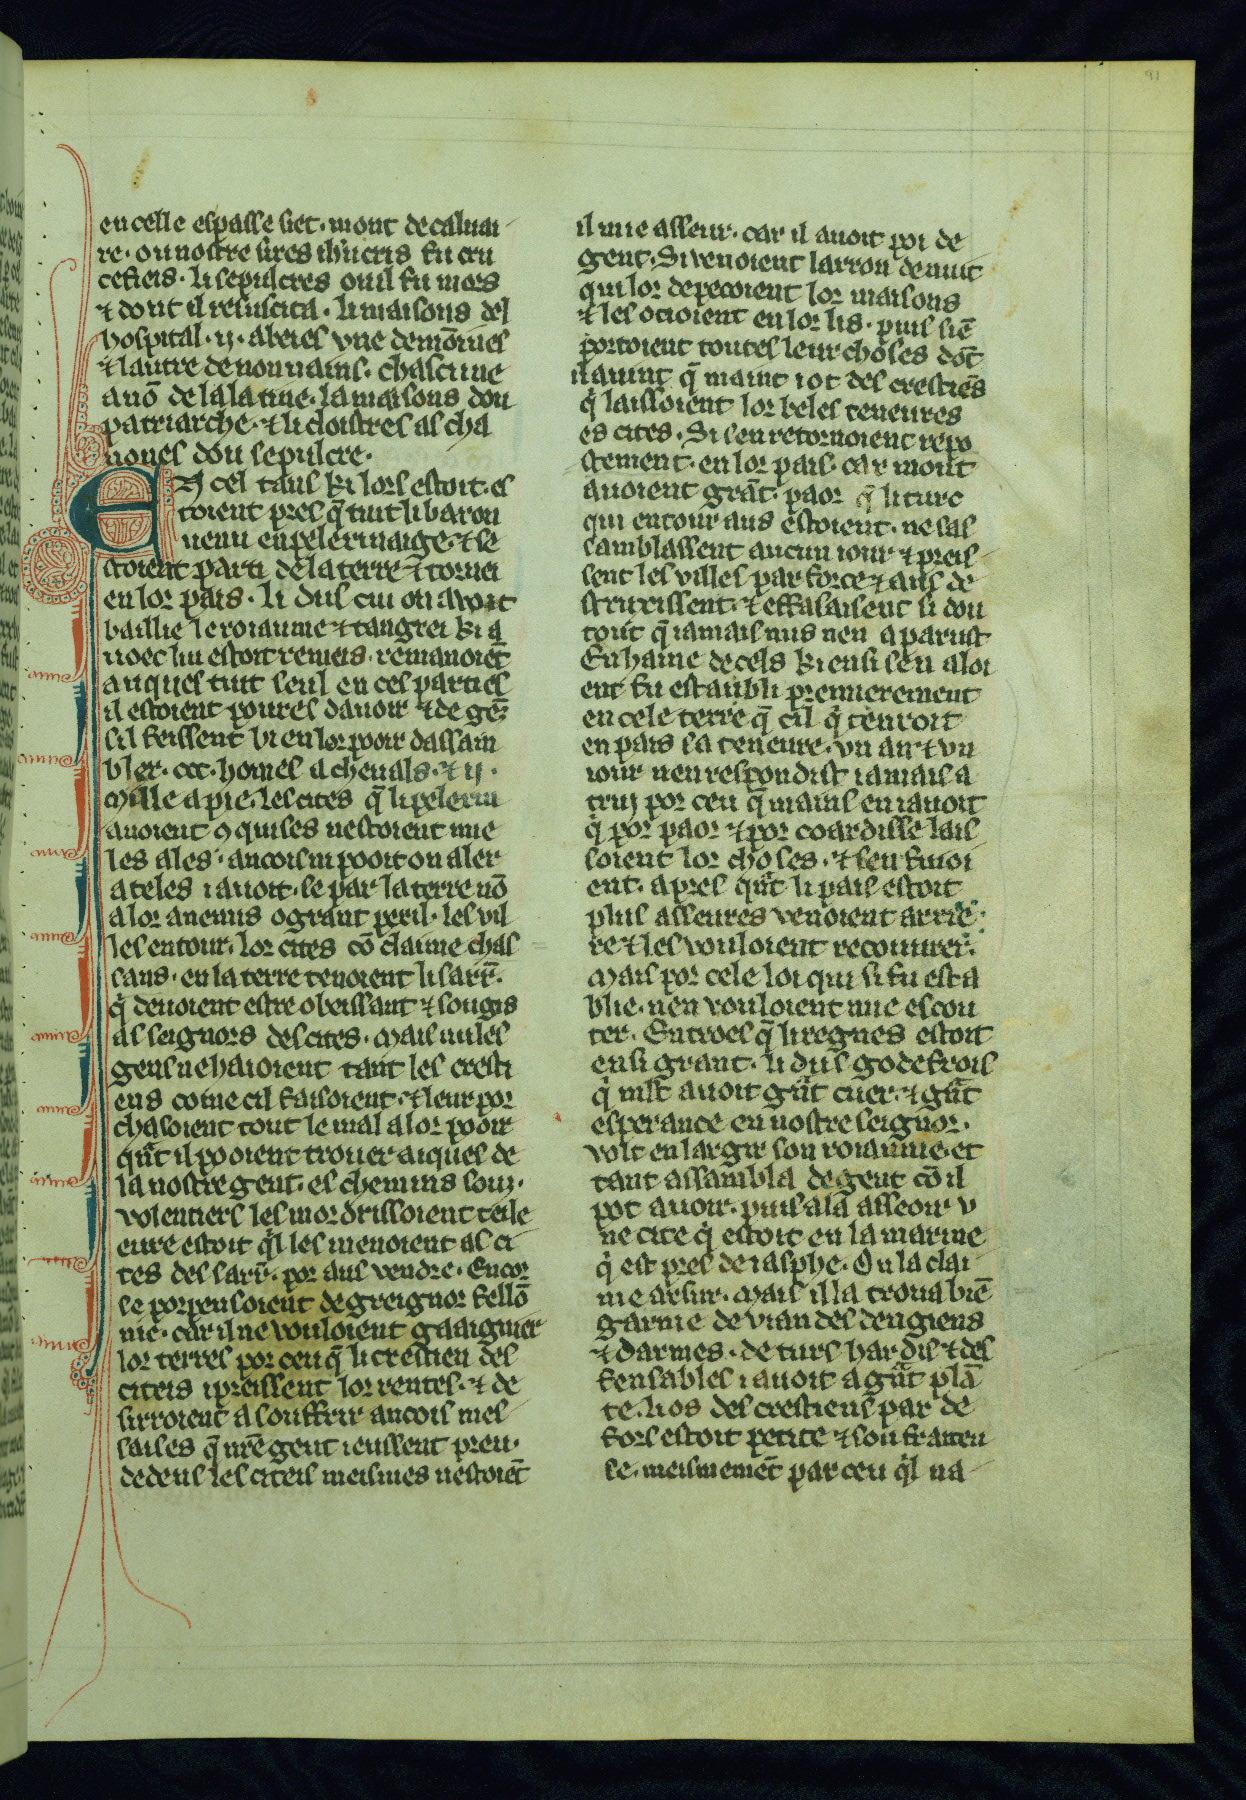 91
en celle espasse siet. mont de caluai
re. ou nostre sires ihu cris fu cru
cefieis. li sepulcres ou il fu mors
⁊ dont il resuscita. li maisons del
hospital. ij. abeies vne de mōnies
⁊ lautre de nonnains. chascune
a nō de la latine. la maisons dou
patriarche. ⁊ li cloistres as cha
nones dou sepulcre.
En cel tans ki lors estoit. es
toient pres q̄ tuit li baron
uenu en pelerinaige. ⁊ se
stoient parti de la terre ⁊ tornei
en lor païs. li dus cui on auoit
baillie le roiaume ⁊ tangrei ki a
uoec lui estoit remeis. remanoiēt
auques tuit seul en ces parties
il estoient poures dauoir ⁊ de gēs
sil feissent bien lor pooir dassam
bler. ccc. homes a cheuals. ⁊ ij.
Mille a pie. les cites q̄ li pelerin
auoient ꝯquises nestoient mie
les ales. ancois ni pooit on aler
a teles i auoit. se par la terre nō
a lor anemis o grant peril. les vil
les entour. lor cites cō claime chas
saus. en la terre tenoient li sarr̄.
q̇ deuoient estre obeissant ⁊ sougis
as seignors des cites. Mais nules
gens ne haioient tant les cresti
ens come cil faisoient. ⁊ leur por
chasoient tout le mal a lor pooir
qūt il pooient trouer aiques de
la nostre gent. es chemins souz.
volentiers les mordrissoient tele
eure estoit q̇l les menoient as ci
tes des sarr̄. por aus vendre. Encor
se porpensoient de greignor fellō
nie. car il ne vouloient gaaignier
lor terres por ceu q̄ li crestien des
citeis i preissent lor rentes. ⁊ de
sirroient a souffrir ancois mes
saises q̄ nr̄e gent i eussent preu.
dedens les citeis meismes nestoiēt
il mie asseur. car il auoit poi de
gent. Si venoient larron de nuit
qui lor depecoient lor maisons
⁊ les ocioient en lor lis. puis siē
portoient toutes leur choses dōt
il auint q̄ maint i ot des crestiēs
q̇ laissoient lor beles teneures
es cites. Si sen retornoient repo
stement. en lor païs. car mout
auoient grāt. paor q̄ li turc
qui entour aus estoient. ne sas
samblassent aucun iour ⁊ preis
sent les villes par force ⁊ aus de
struxissent. ⁊ effasaisent si dou
tout q̄ iamais nus nen aparust
En haine de cels ki ensi sen aloi
ent fu estaubli premierement
en cele terre q̄ cil q̇ tenroit
en pais sa teneure. vn an ⁊ vn
iour nen respondist iamais a
truj por ceu q̄ mains en i auoit
q̇ por paor ⁊ por coardisse lais
soient lor choses. ⁊ sen fuioi
ent. apres qūt li pais estoit
plus asseures venoient arrie
re ⁊ les vouloient recouurer.
Mais por cele loi qui si fu esta
blie. nen vouloient mie escou
ter. Entroes q̄ li regnes estoit
ensi grant. li dus godefrois
q̇ mlt̄ auoit gūt cuer. ⁊ gūt
esperance en nostre seignor.
volt enlargir son roiaume. et
tant assambla de gent cō il
pot auoir. puis ala asseoir v
ne cite q̇ estoit en la marine
q̇ est pres de iasphe. On la clai
me arsur. Mais il la troua biē
garnie de viandes dengiens
⁊ darmes. de turs hardis ⁊ des
fensables i auoit a gūt plā
te. li os des crestiens par de
fors estoit petite ⁊ soufraiteu
se. meismemēt par ceu q̇l na